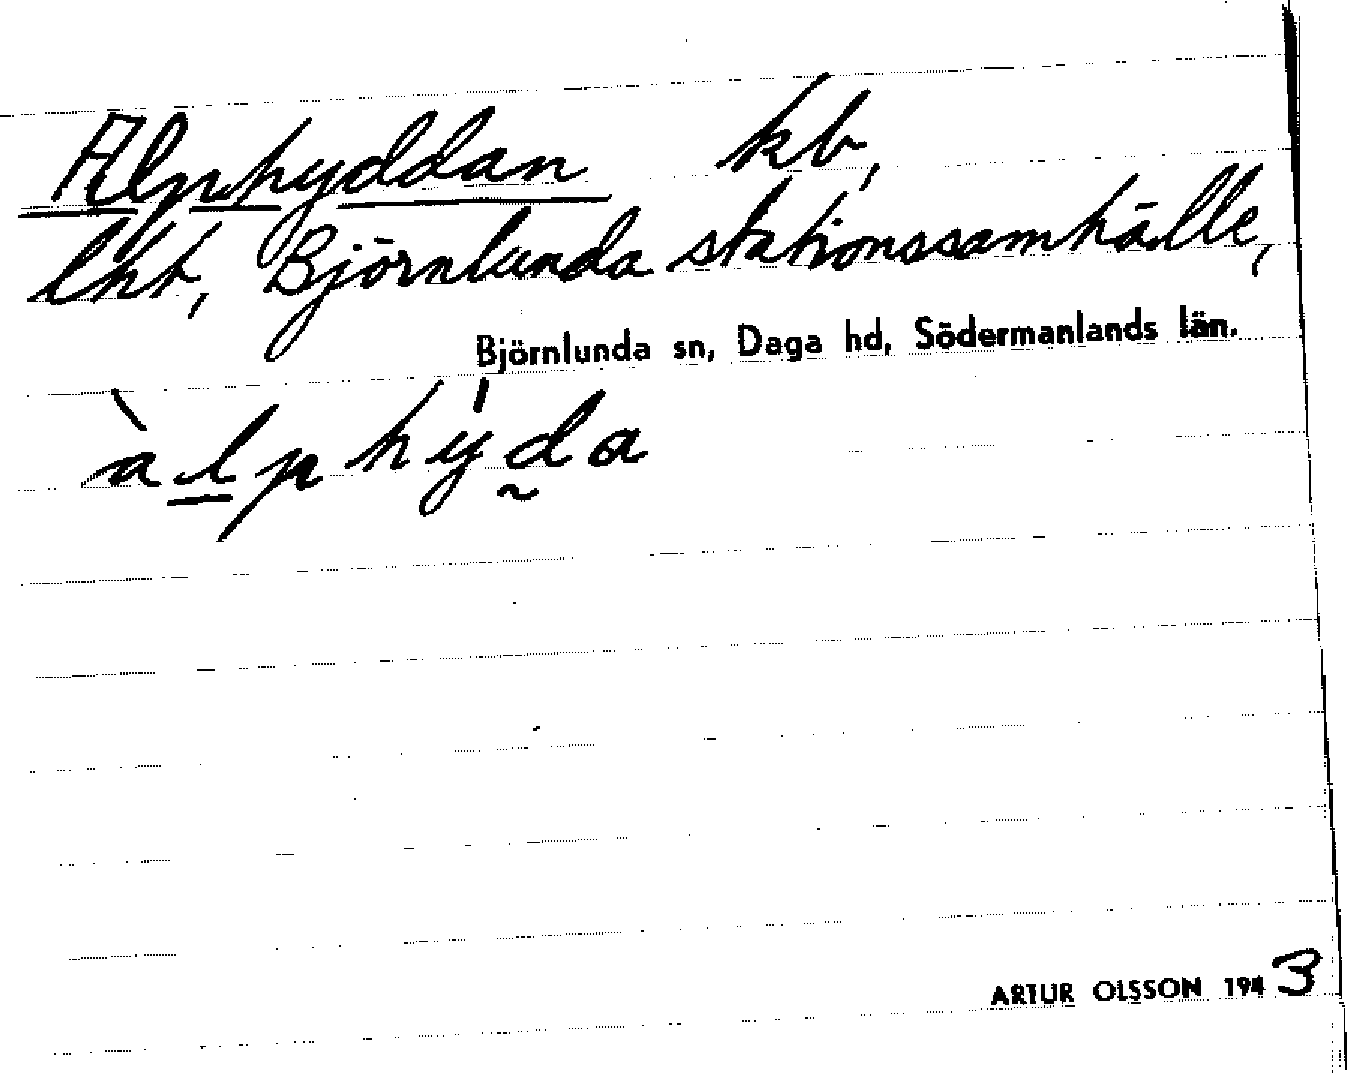 Alphyddan kb,
lht, Björnlunda stationssamhälle,
Björnlunda sn, Daga hd, Södermanlands län.
àlphýda
ARTUR OLSSON 1943